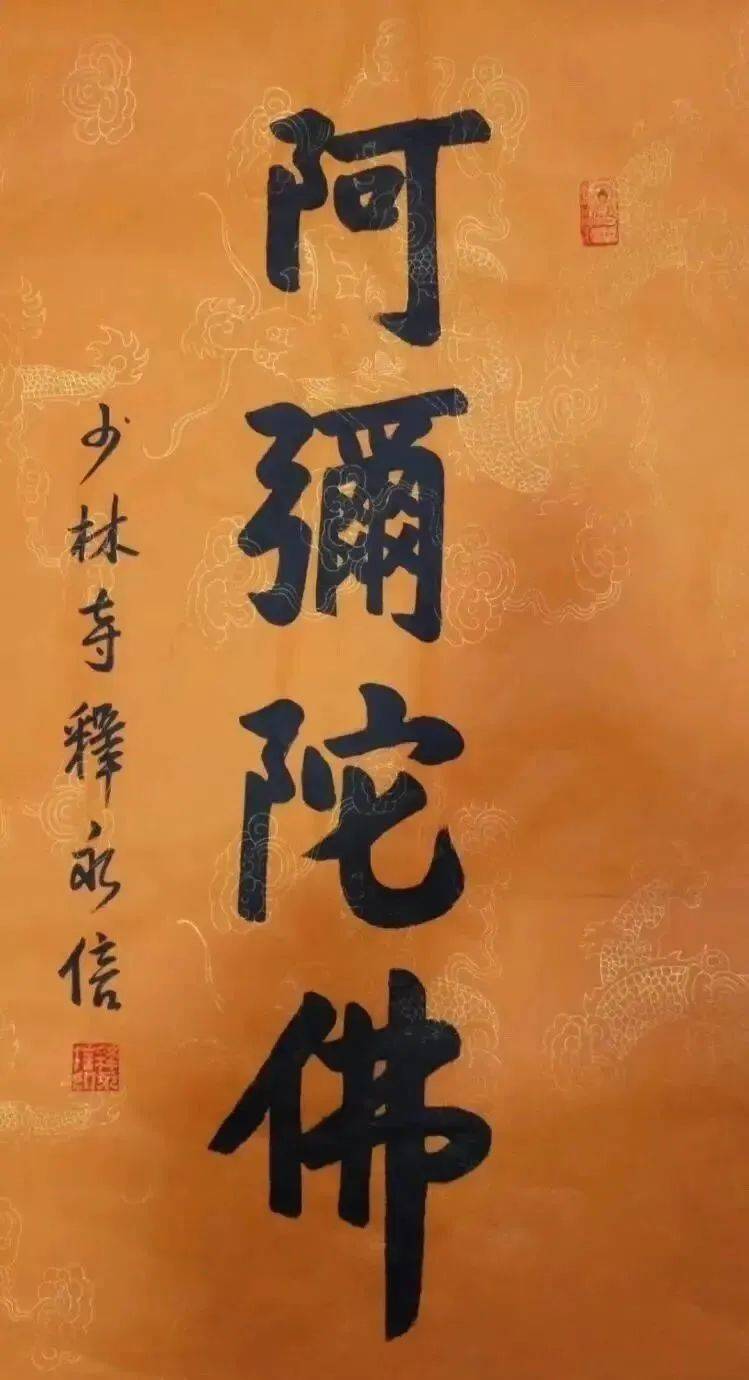 阿彌陀佛
少林寺釋永信